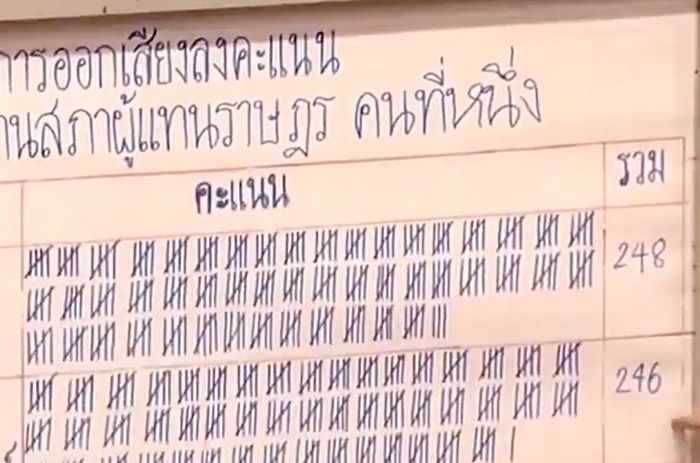 การออกเสียงลงคะแนน
านสภาผู้แทนราษฎร คนที่หนึ่ง
คะแนน
รวม
248
246